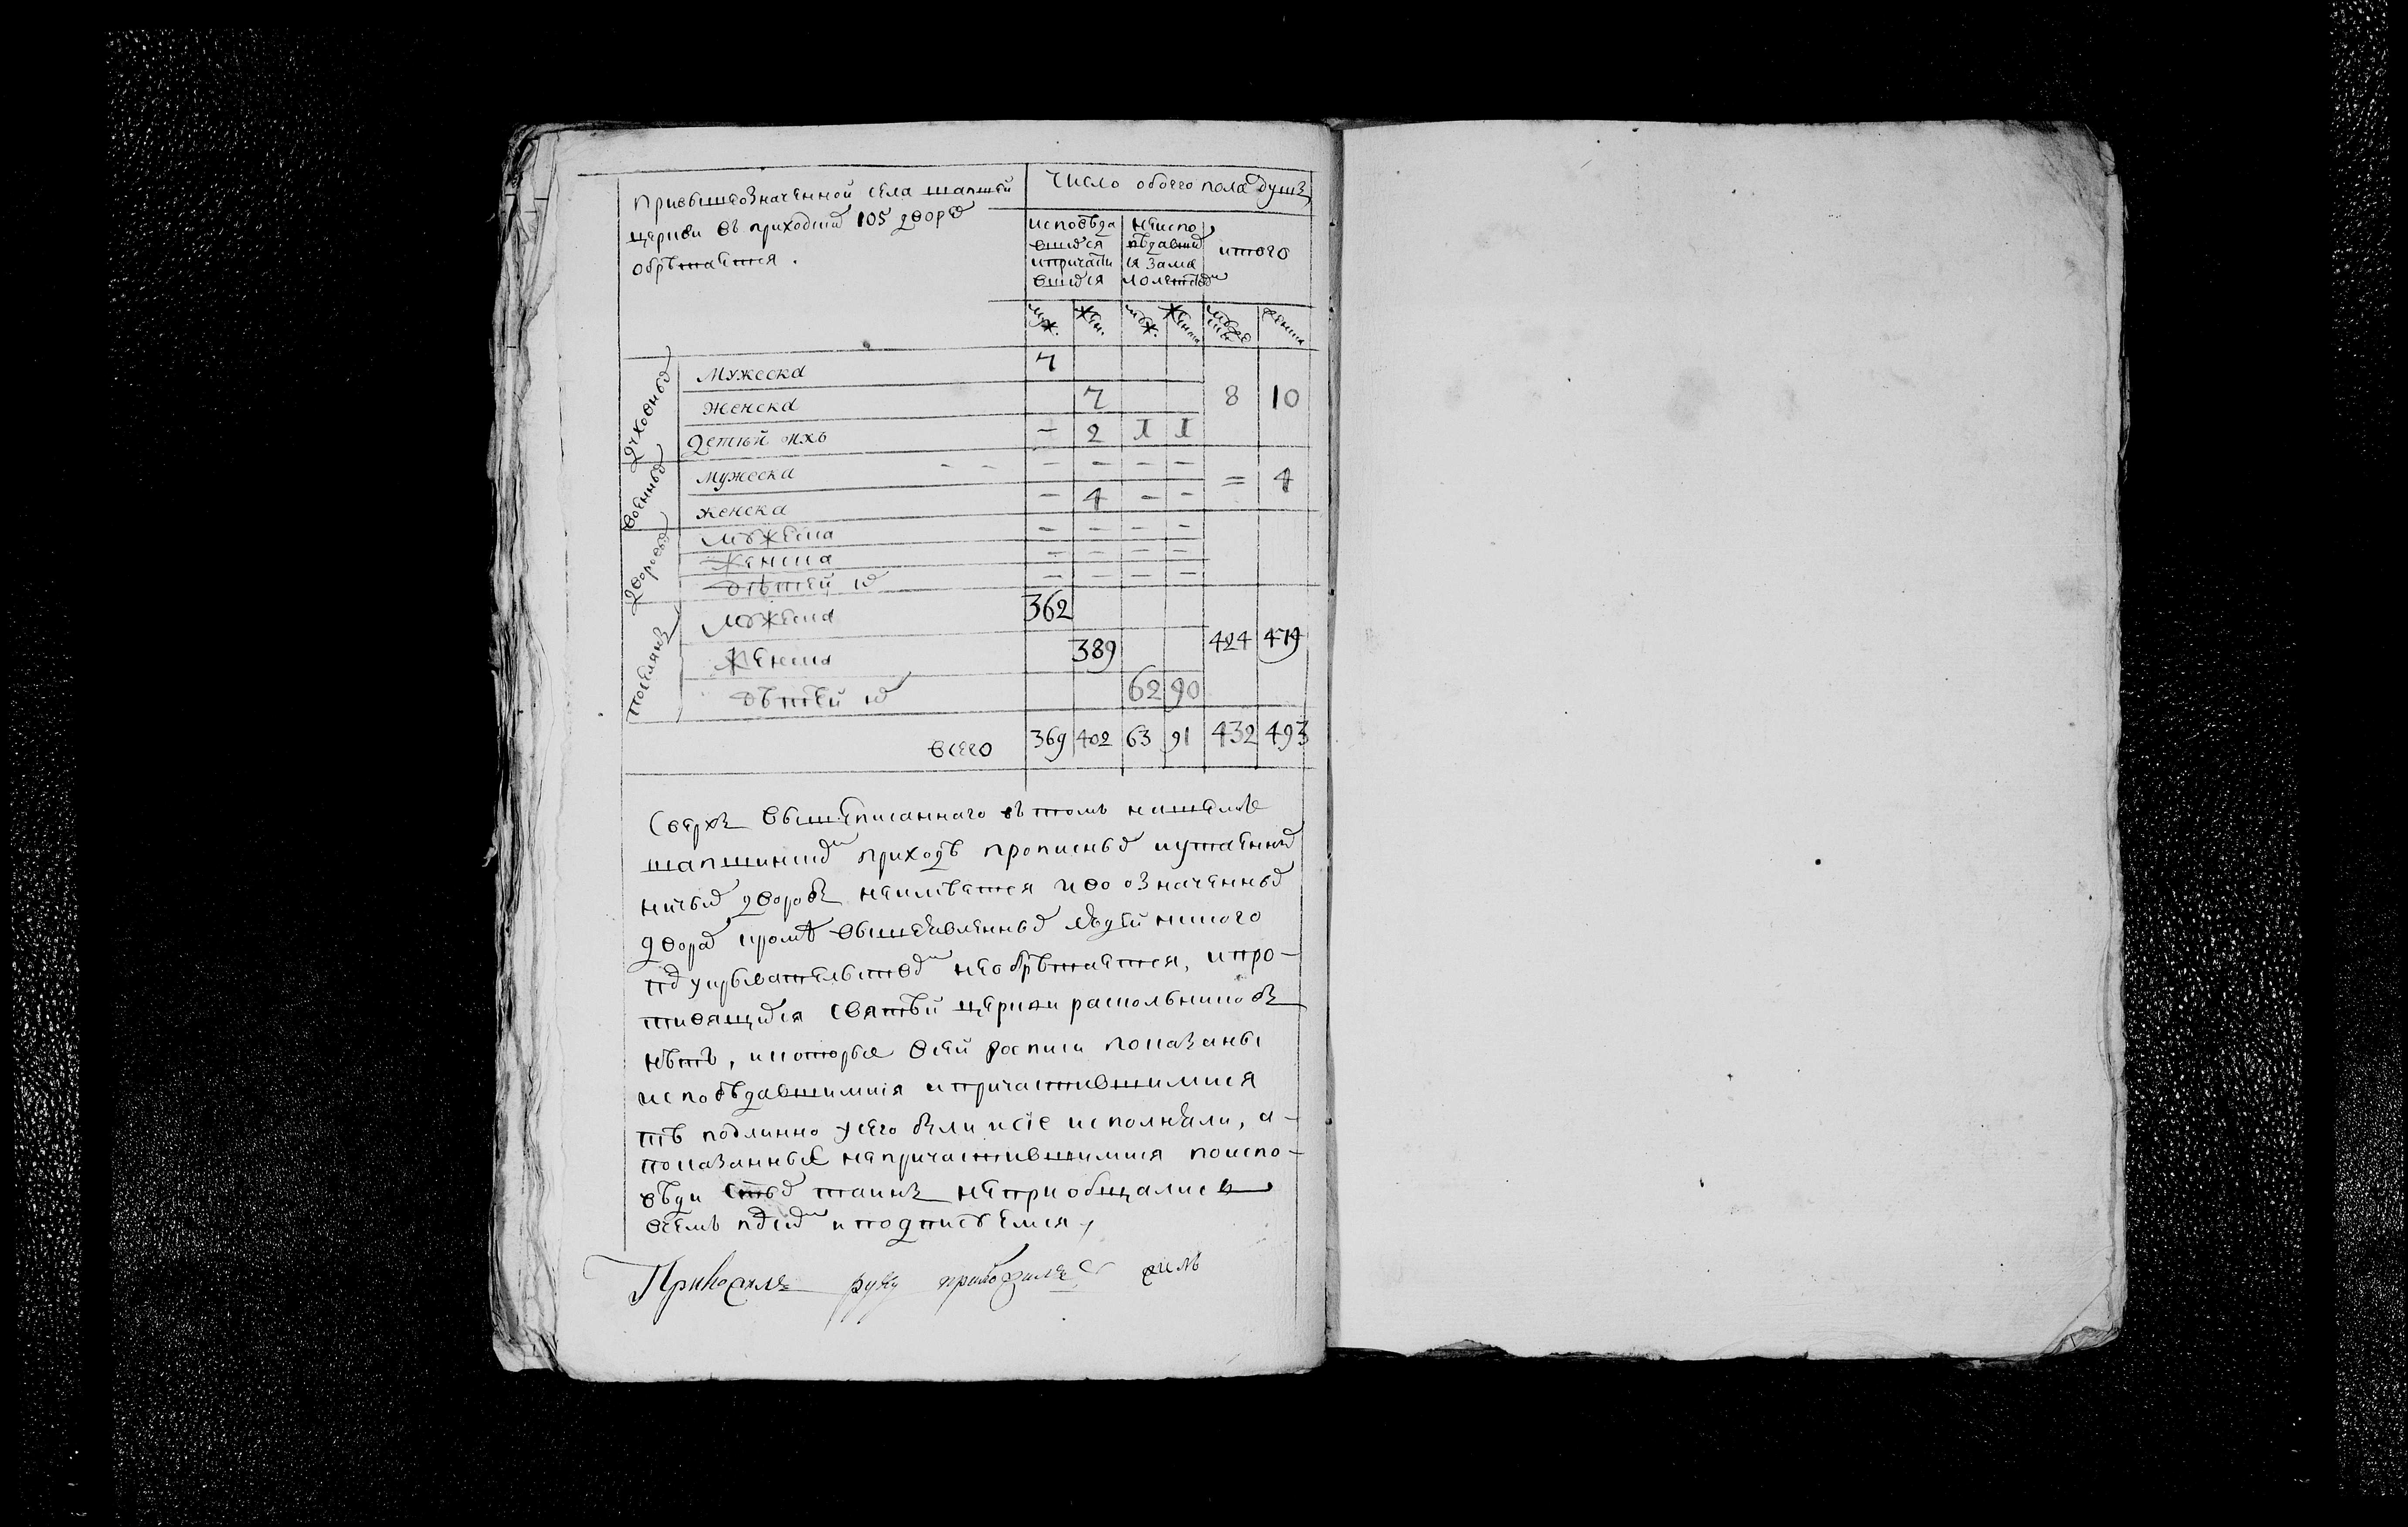 При вышеозначенной села шапшей
церкви въ приходѣ 105 дворѣ
обрѣтается .
число обоего пола душъ
исповѣда вшихся и причасти вшихся
неиспо вѣдавши ся за ма лолетст
итого
муж. жен. муж. женска женска
духовныхъ
Мужеска 7
женска 7 8 10
детей ихъ – 2 I I
военныхъ
мужеска – – – – = 4
женска – 4 – –
дворовыхъ
мужеска – – – –
женска – – – –
дѣтей ихъ – – – –
поселянъ
мужеска 362
женска 389 424 479
дѣтей ихъ 62 90
всего 369 402 63 91 432 493
Сверхъ вышеписаннаго въ томъ нашемъ
шапшинскомъ приходѣ прописныхъ и утаенныхъ
ничьихъ дворовъ неимѣется и во означенныхъ
дворахъ кромѣ вышеявленныхъ людей никого
подукрывательствомъ необрѣтается, и про-
тивящихся святѣй церкви раскольниковъ
нѣтъ, и которые в сей росписи показаны
исповѣдавшимися и причастившимися
тѣ подлинно у сего были и сіе исполняли, а-
показанные непричастившимися по испо-
вѣди стыхъ таинъ неприобщались
в семъ и подписуемся
руку приложилъ